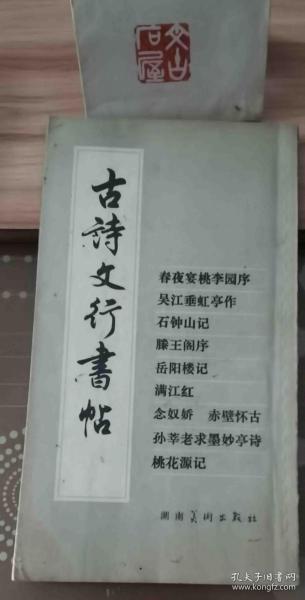 古詩文行書帖
春夜宴桃李园序
吴江垂虹亭作
石钟山记
滕王阁序
岳阳楼记
满江红
念奴娇 赤壁怀古
孙莘老求墨妙亭诗
桃花源记
湖南美術出版社
孔夫子旧书网